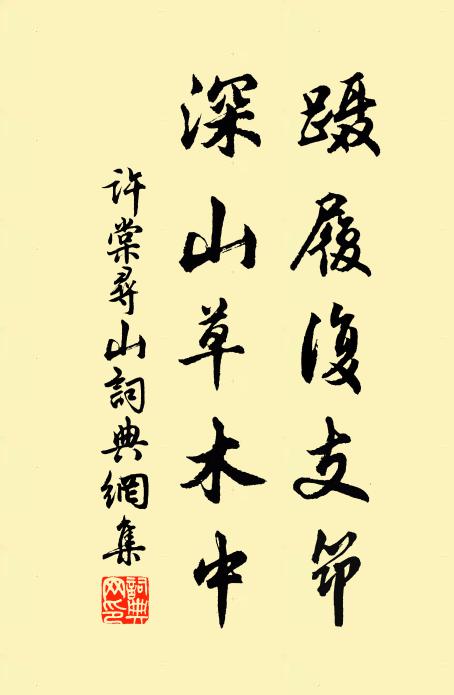 蹑履復支筇
深山草木中
許棠尋山詞典網集
詞典网印